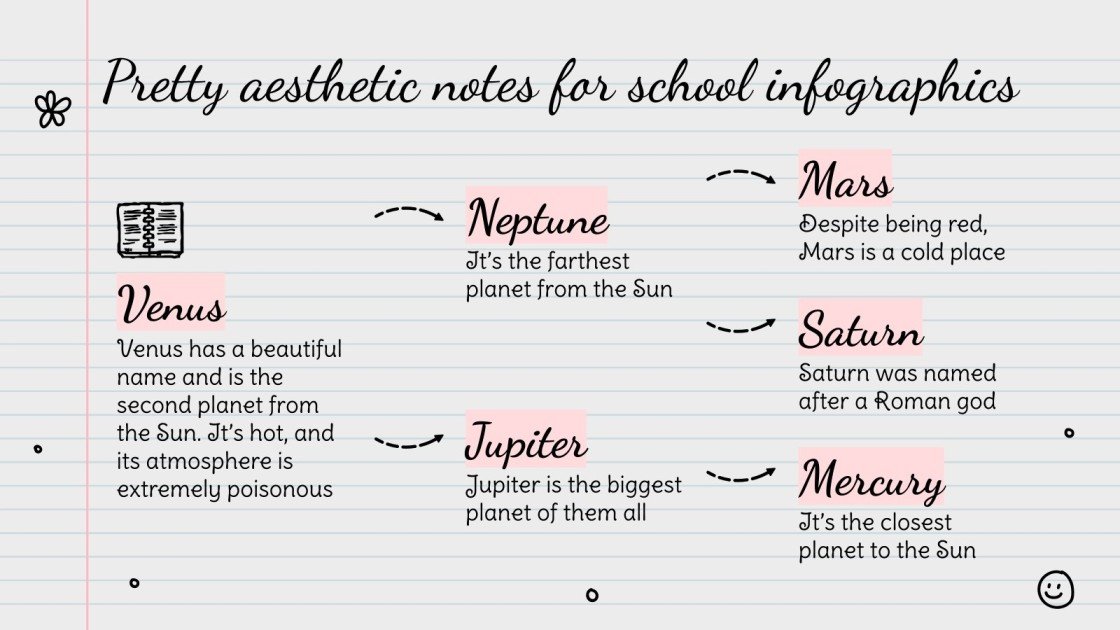 Pretty aesthetic notes for school infographics
Venus
Venus has a beautiful
name and is the
second planet from
the Sun. It's hot, and
its atmosphere is
extremely poisonous
Neptune
It's the farthest
planet from the Sun
Jupiter
Jupiter is the biggest
planet of them all
Mars
Despite being red,
Mars is a cold place
Saturn
Saturn was named
after a Roman god
Mercury
It's the closest
planet to the Sun